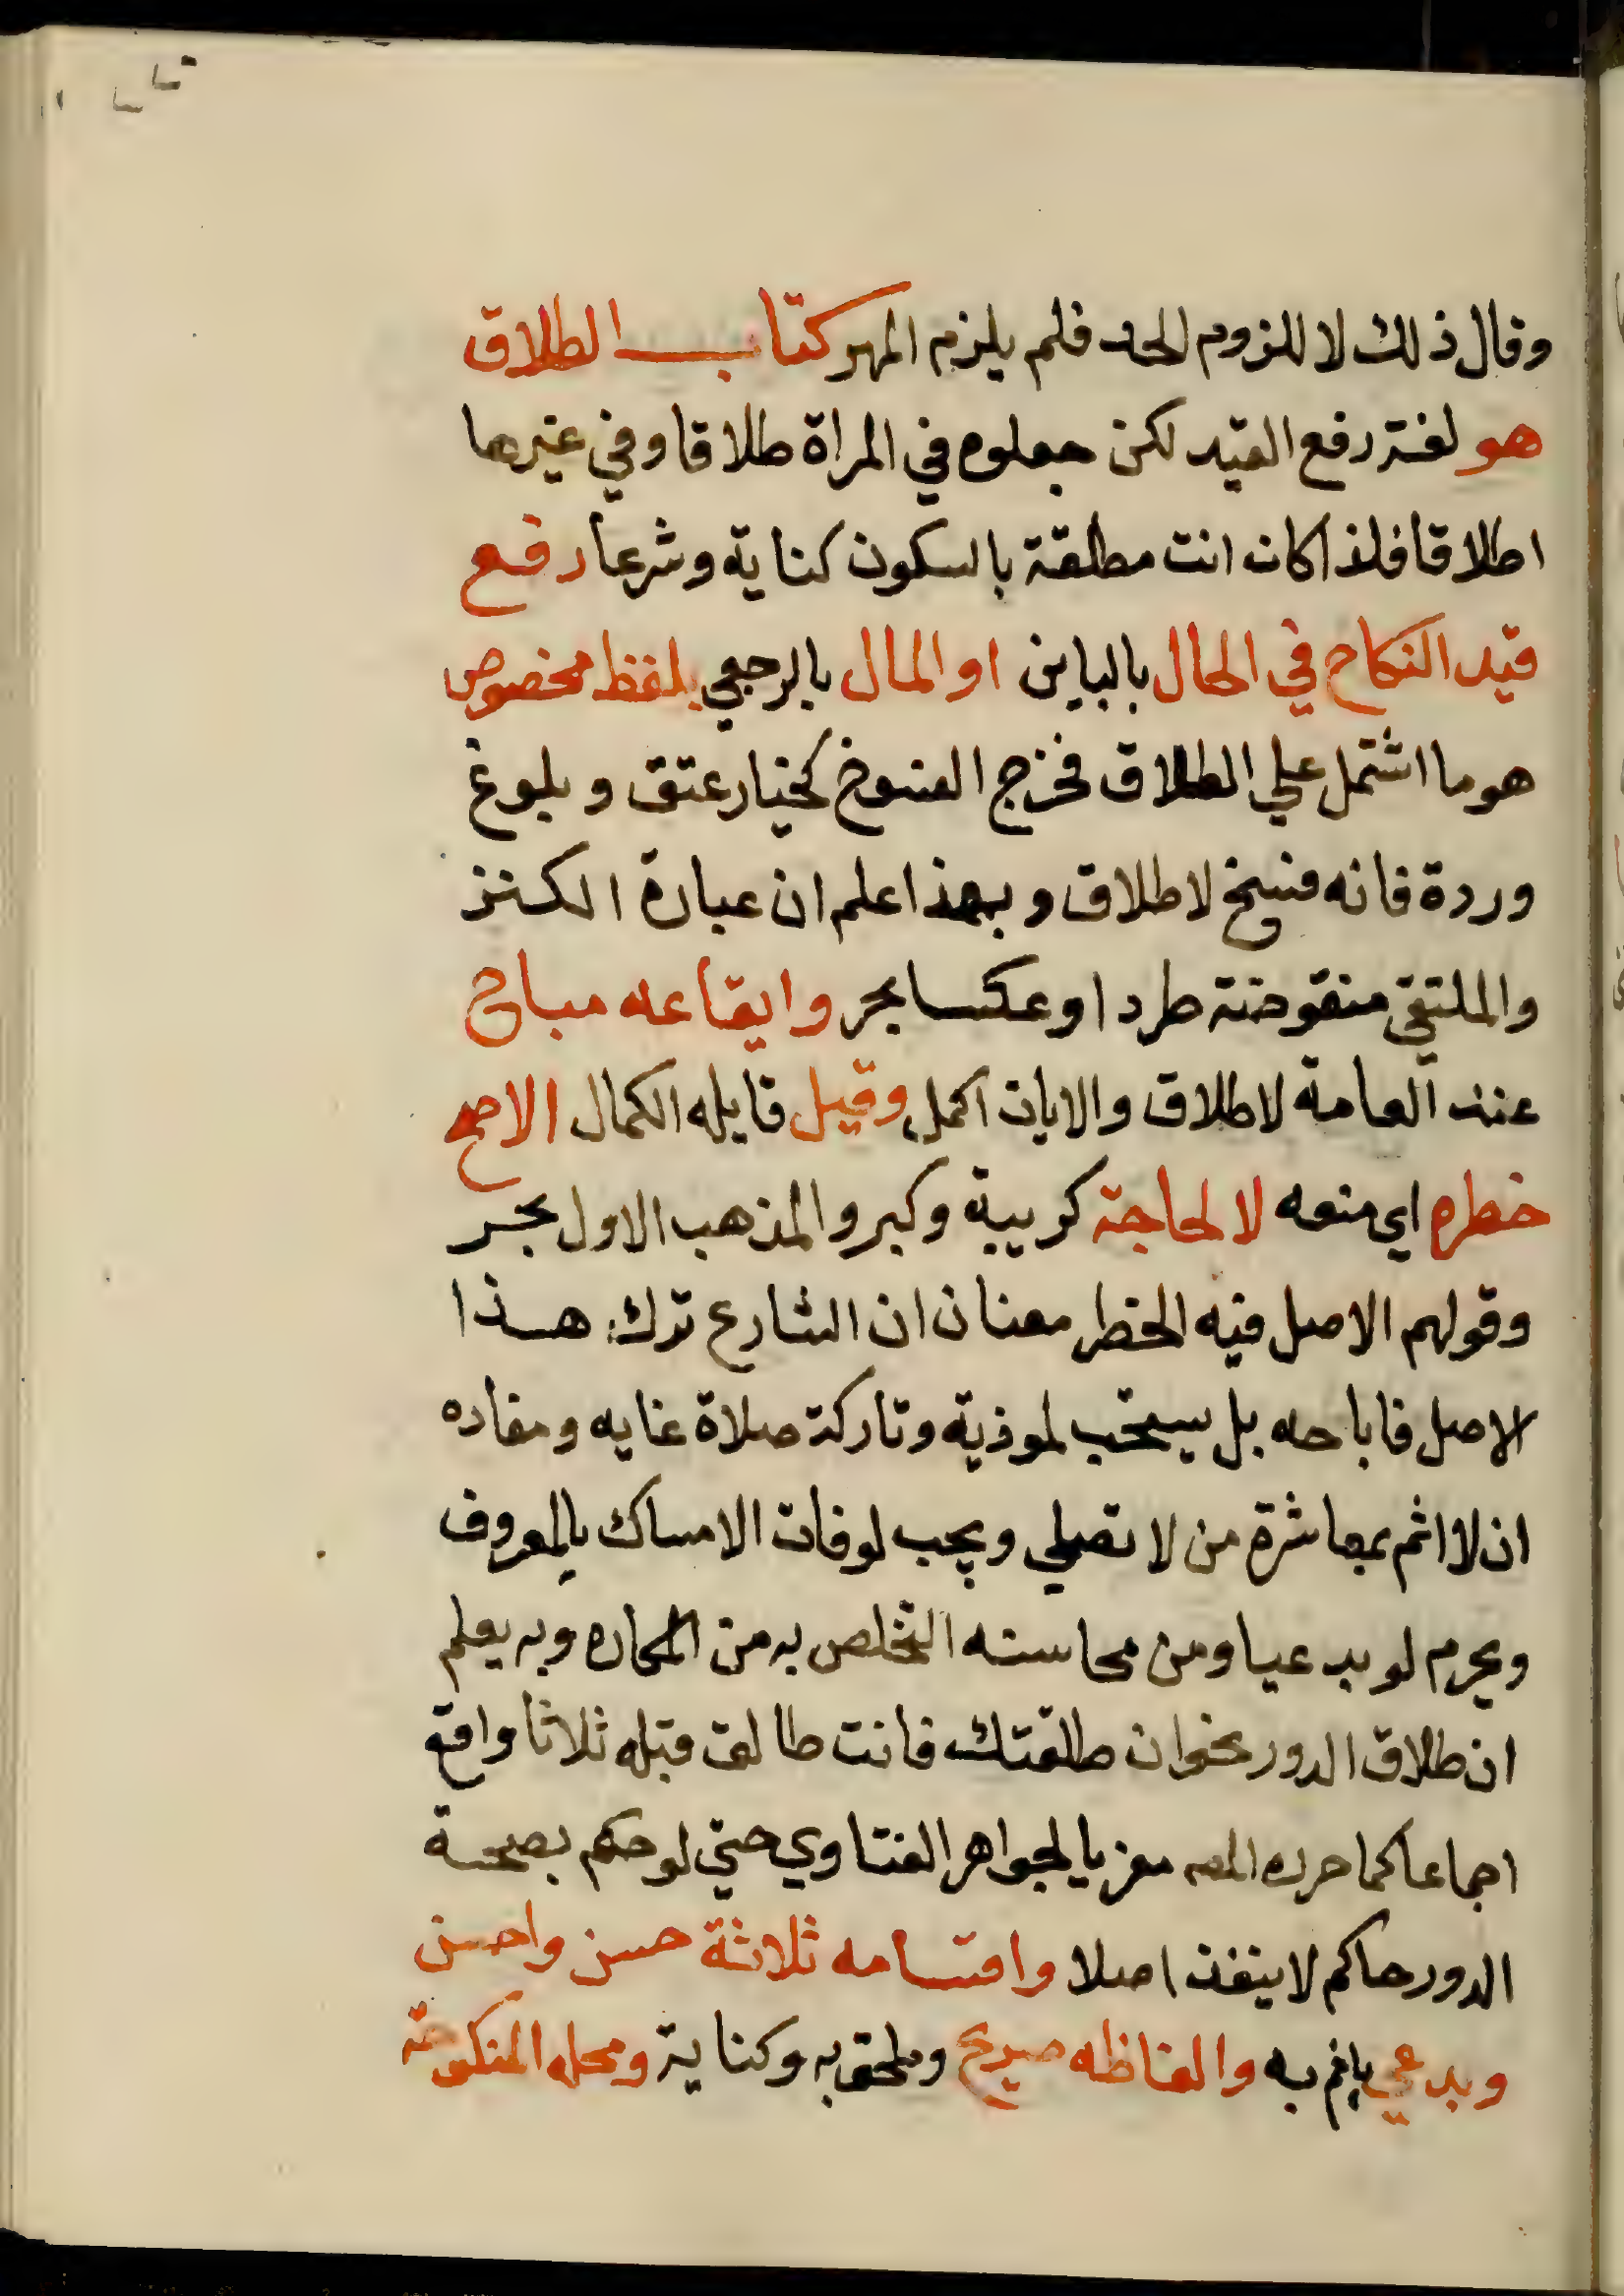 وقال ذلك لا للزوم الحد فلم يلزم المهر كتاب الطلاق
هو لغة رفع القيد لكن جعلوه في المراة طلاقا وفي غيرها
اطلاقا فلذا كان انت مطلقة بالسكون كناية وشرعا رفع
قيد النكاح في الحال بالباين او المال بالرجعي بلفظ مخصوص
هو ما اشتمل علي الطلاق فخرج الفسوخ كخيار عتق وبلوغ
وردة فانه فسخ لا طلاق وبهذا علم ان عبارة الكنز
والملتقي منقوضة طردا وعكسا بحر وايقاعه مباح
عند العامة لاطلاق والايات اكمل وقيل قايله الكمال الاصح
خطره اي منعه لا لحاجة كريبة وكبر والمذهب الاول بحر
وقولهم الاصل فيه الخطر معنان ان الشارع ترك هذا
الاصل فاباحه بل يستحب لموذية وتاركة صلاة غايه ومفاده
ان لا اثم بمعاشرة من لا تصلي ويجب لو فات الامساك بالمعروف
ويحرم لو بدعيا ومن محاسنه التخلص به من المكاره وبه يعلم
ان طلاق الدور نحو ان طلقتك فانت طالق قبله ثلاثا واقع
اجماعا كما حرره المص معزيا لجواهر الفتاوي حتي لو حكم بصحة
الدور حاكم لا ينفذ اصلا واقسامه ثلاثة حسن واحسن
وبدعي ياثم به والفاظه صريح وملحق به وكناية ومحله المنكوحة